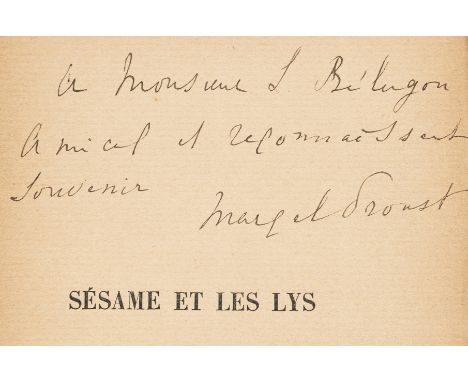 A Monsieur L Bélugon
Amical et reconnaissant
Souvenir
Marcel Proust
SÉSAME ET LES LYS